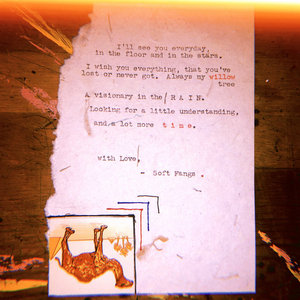 I'll see you everyday,
in the floor and in the stars.
I wish you everything, that you've
lost or never got. Always my willow
tree
A visionary in the R A I N.
Looking for a little understanding,
and a lot more t i m e .
with Love,
- Soft Fangs .